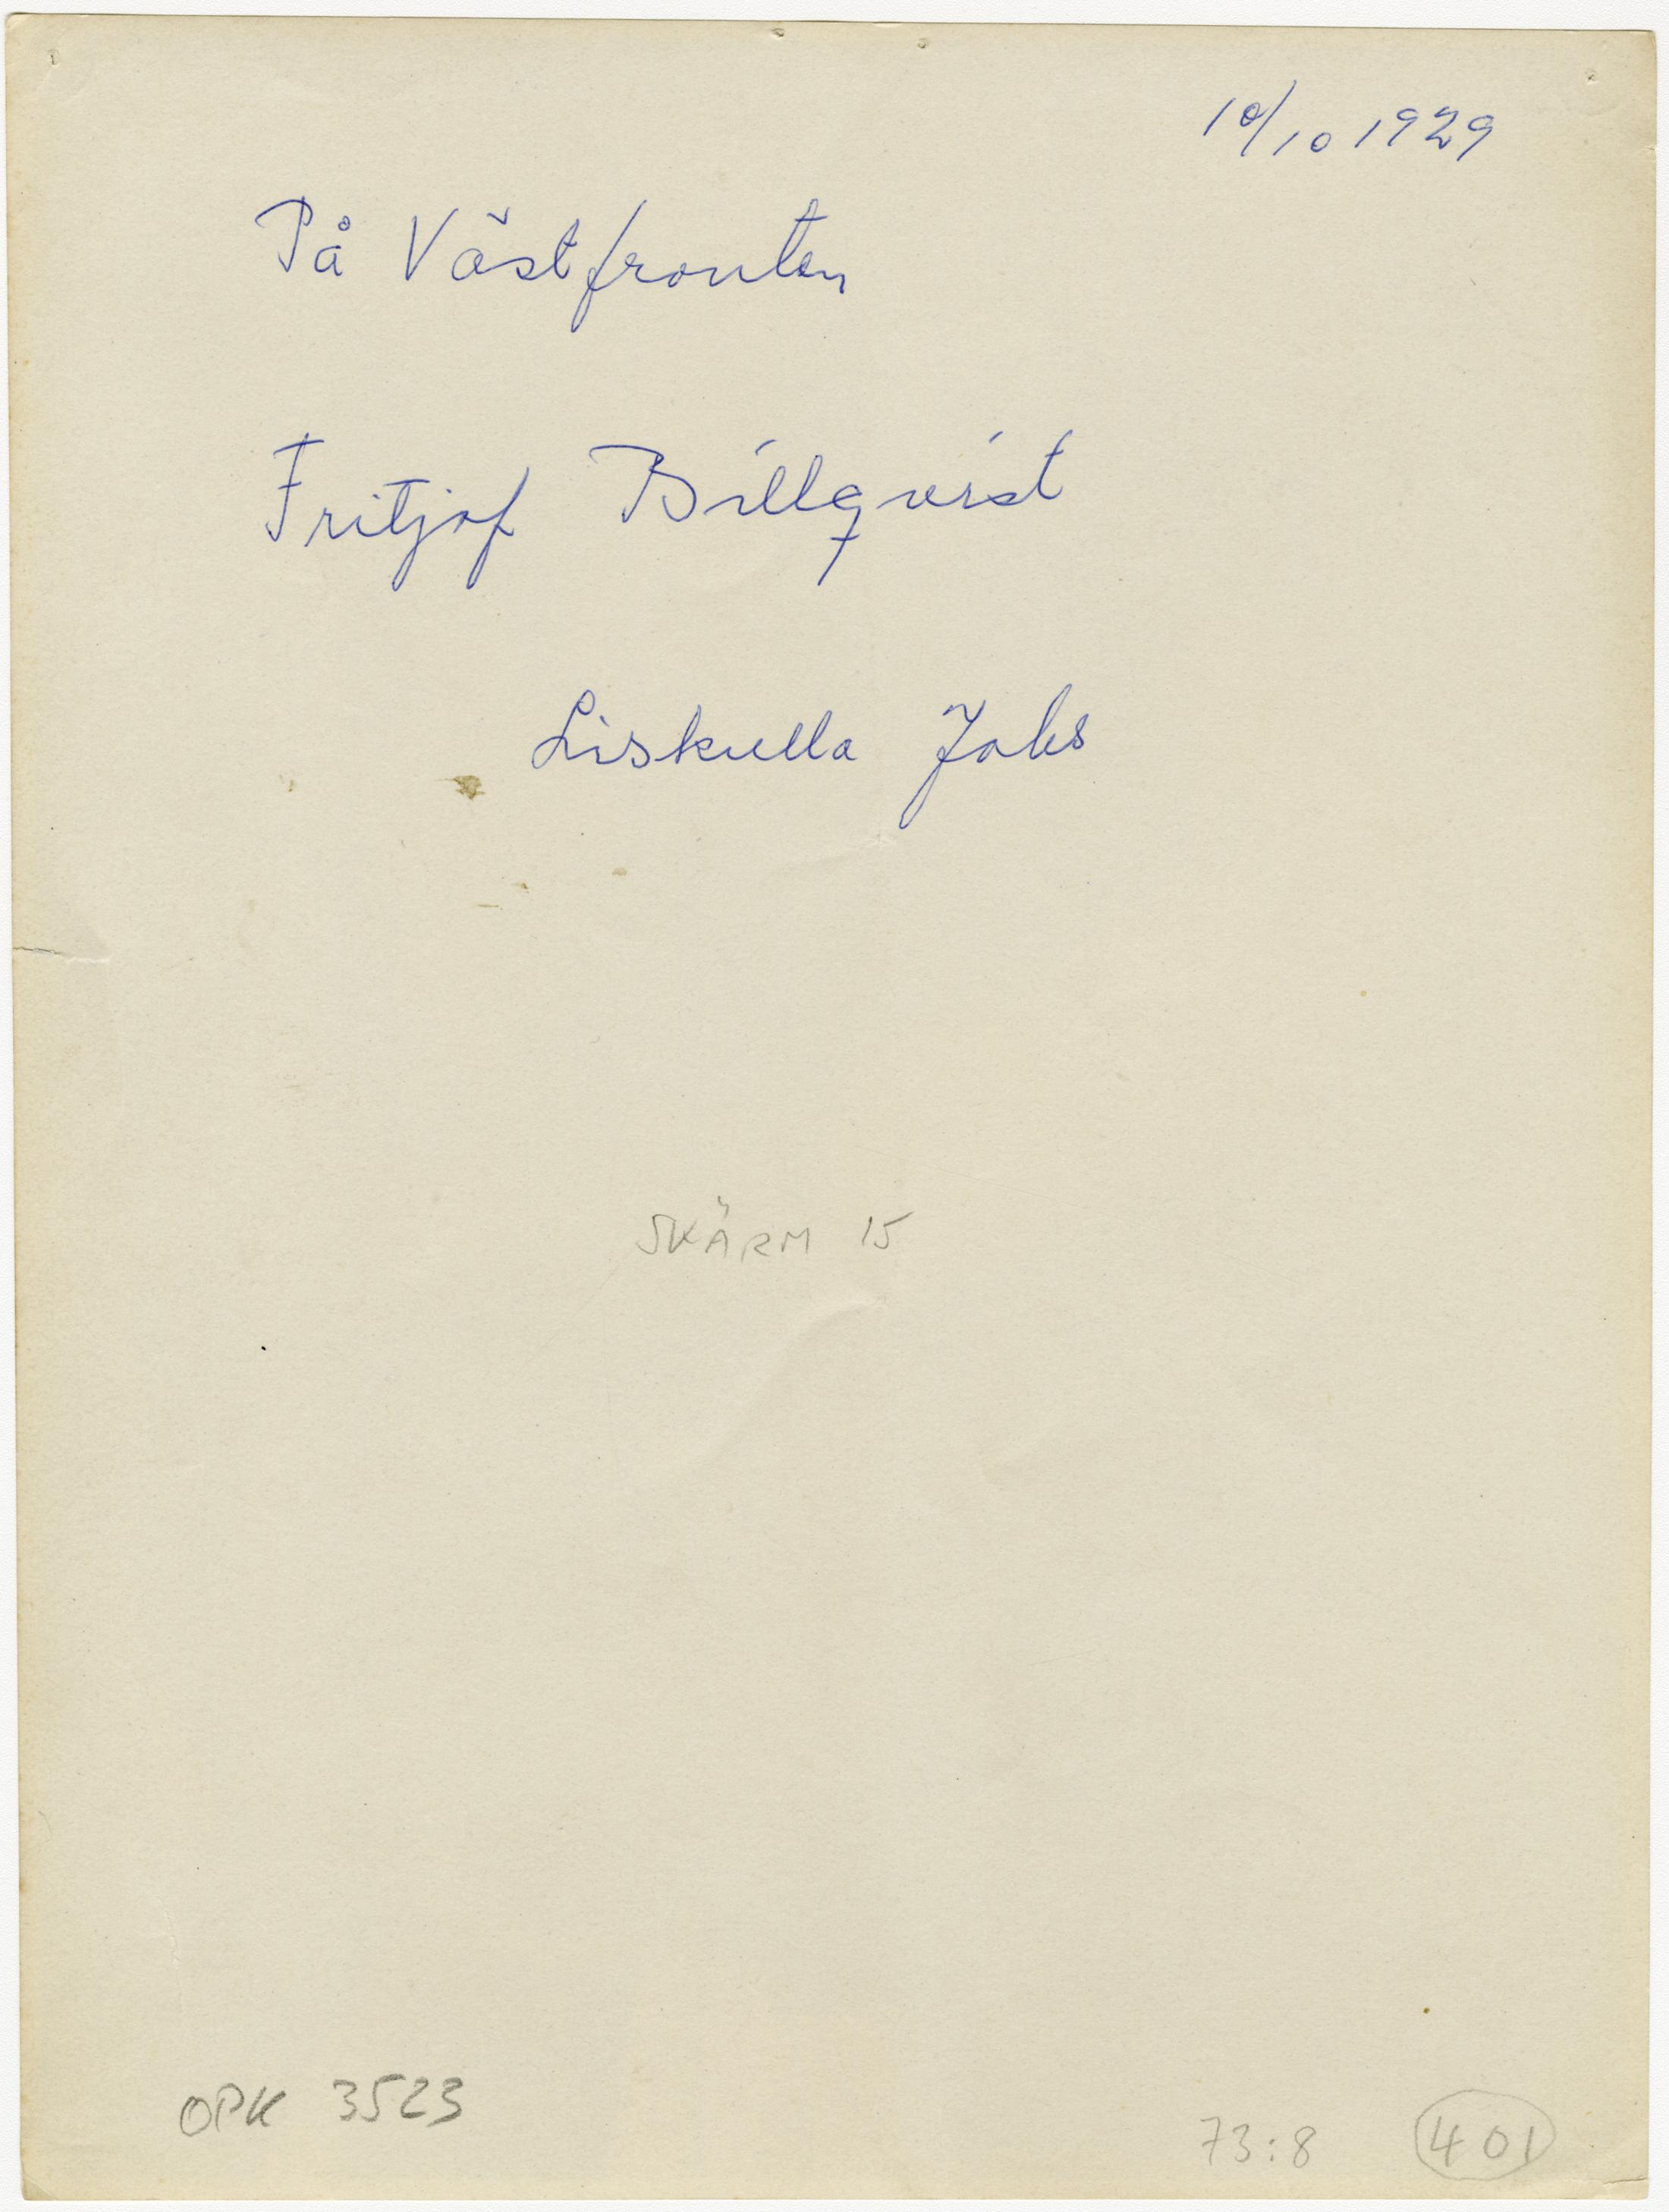 10/10 1929
På Västfronten
Fritjof Billqvist
Liskulla Jobs
SKÄRM 15
OPK 3523
73:8 401